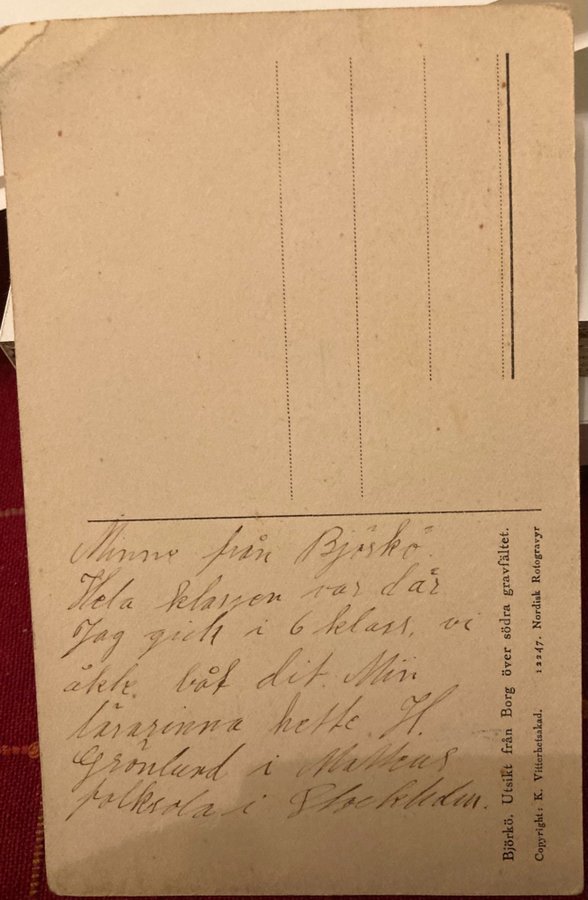 Minne från Björkö.
Hela klassen var där
Jag gick i 6 klass, vi
åkte båt dit. Min
lärarinna hette H.
Grönlund i Matteus
folkskola i Stockholm.
Björkö. Utsikt från Borg över södra gravfältet.
Copyright: K. Vitterhetsakad. 12247. Nordisk Rotogravyr